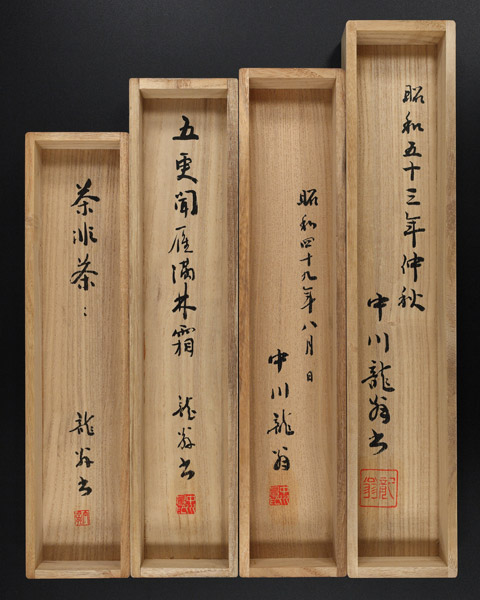 昭和五十三年仲秋
中川龍翁書
昭和四十九年八月日
中川龍翁
五更聞雁満林霜
龍翁書
茶非茶〻
龍翁書